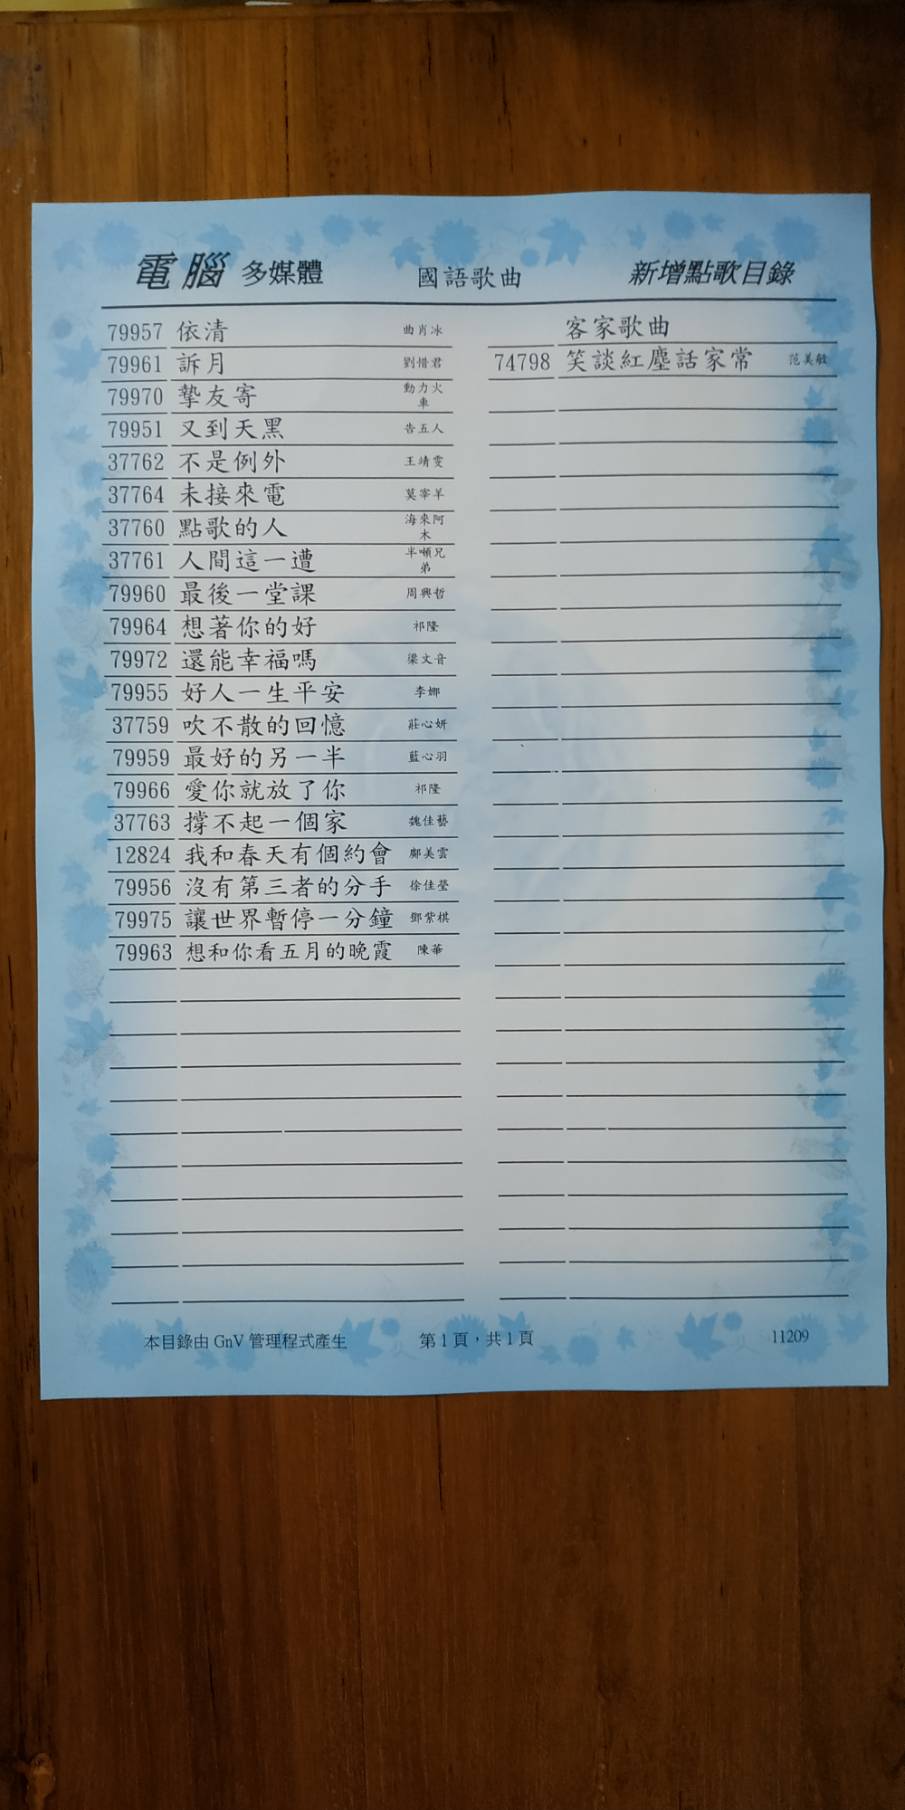 電腦 多媒體 國語歌曲 新增點歌目錄
79957 依清 曲肖冰
79961 訴月 劉惜君
79970 摯友寄 動力火車
79951 又到天黑 告五人
37762 不是例外 王靖雯
37764 未接來電 莫宰羊
37760 點歌的人 海來阿木
37761 人間這一遭 半噸兄弟
79960 最後一堂課 周興哲
79964 想著你的好 祁隆
79972 還能幸福嗎 梁文音
79955 好人一生平安 李娜
37759 吹不散的回憶 莊心妍
79959 最好的另一半 藍心羽
79966 愛你就放了你 祁隆
37763 撐不起一個家 魏佳藝
12824 我和春天有個約會 鄺美雲
79956 沒有第三者的分手 徐佳瑩
79975 讓世界暫停一分鐘 鄧紫棋
79963 想和你看五月的晚霞 陳華
客家歌曲
74798 笑談紅塵話家常 范美敏
本目錄由 GnV 管理程式產生 第1頁，共1頁 11209